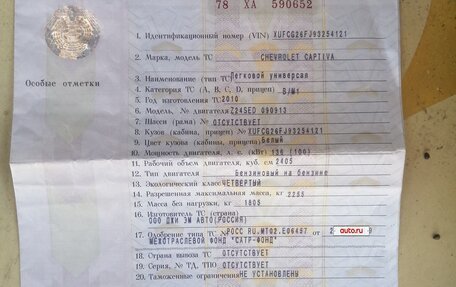 78 ХА 590652
1. Идентификационный номер (VIN) XUFCG26FJ93254121
2. Марка, модель ТС CHEVROLET CAPTIVA
3. Наименование (тип ТС) Легковой универсал
Особые отметки
4. Категория ТС (А, В, С, D, прицеп) В/М1
5. Год изготовления ТС 2010
6. Модель, № двигателя Z24SED 090913
7. Шасси (рама) № ОТСУТСТВУЕТ
8. Кузов (кабина, прицеп) № XUFCG26FJ93254121
9. Цвет кузова (кабины, прицепа) Белый
10. Мощность двигателя, л. с. (кВт) 136 (100)
11. Рабочий объем двигателя, куб. см 2405
12. Тип двигателя Бензиновый на бензине
13. Экологический класс ЧЕТВЕРТЫЙ
14. Разрешенная максимальная масса, кг
15. Масса без нагрузки, кг 1805
16. Изготовитель ТС (страна)
ООО ДЖИ ЭМ АВТО(РОССИЯ)
17. Одобрение типа ТС № РОСС RU.МТ02.Е06457 от auto.ru
МЕЖОТРАСЛЕВОЙ ФОНД "САТР-ФОНД"
18. Страна вывоза ТС ОТСУТСТВУЕТ
19. Серия, № ТД, ТПО ОТСУТСТВУЕТ
20. Таможенные ограничения НЕ УСТАНОВЛЕНЫ